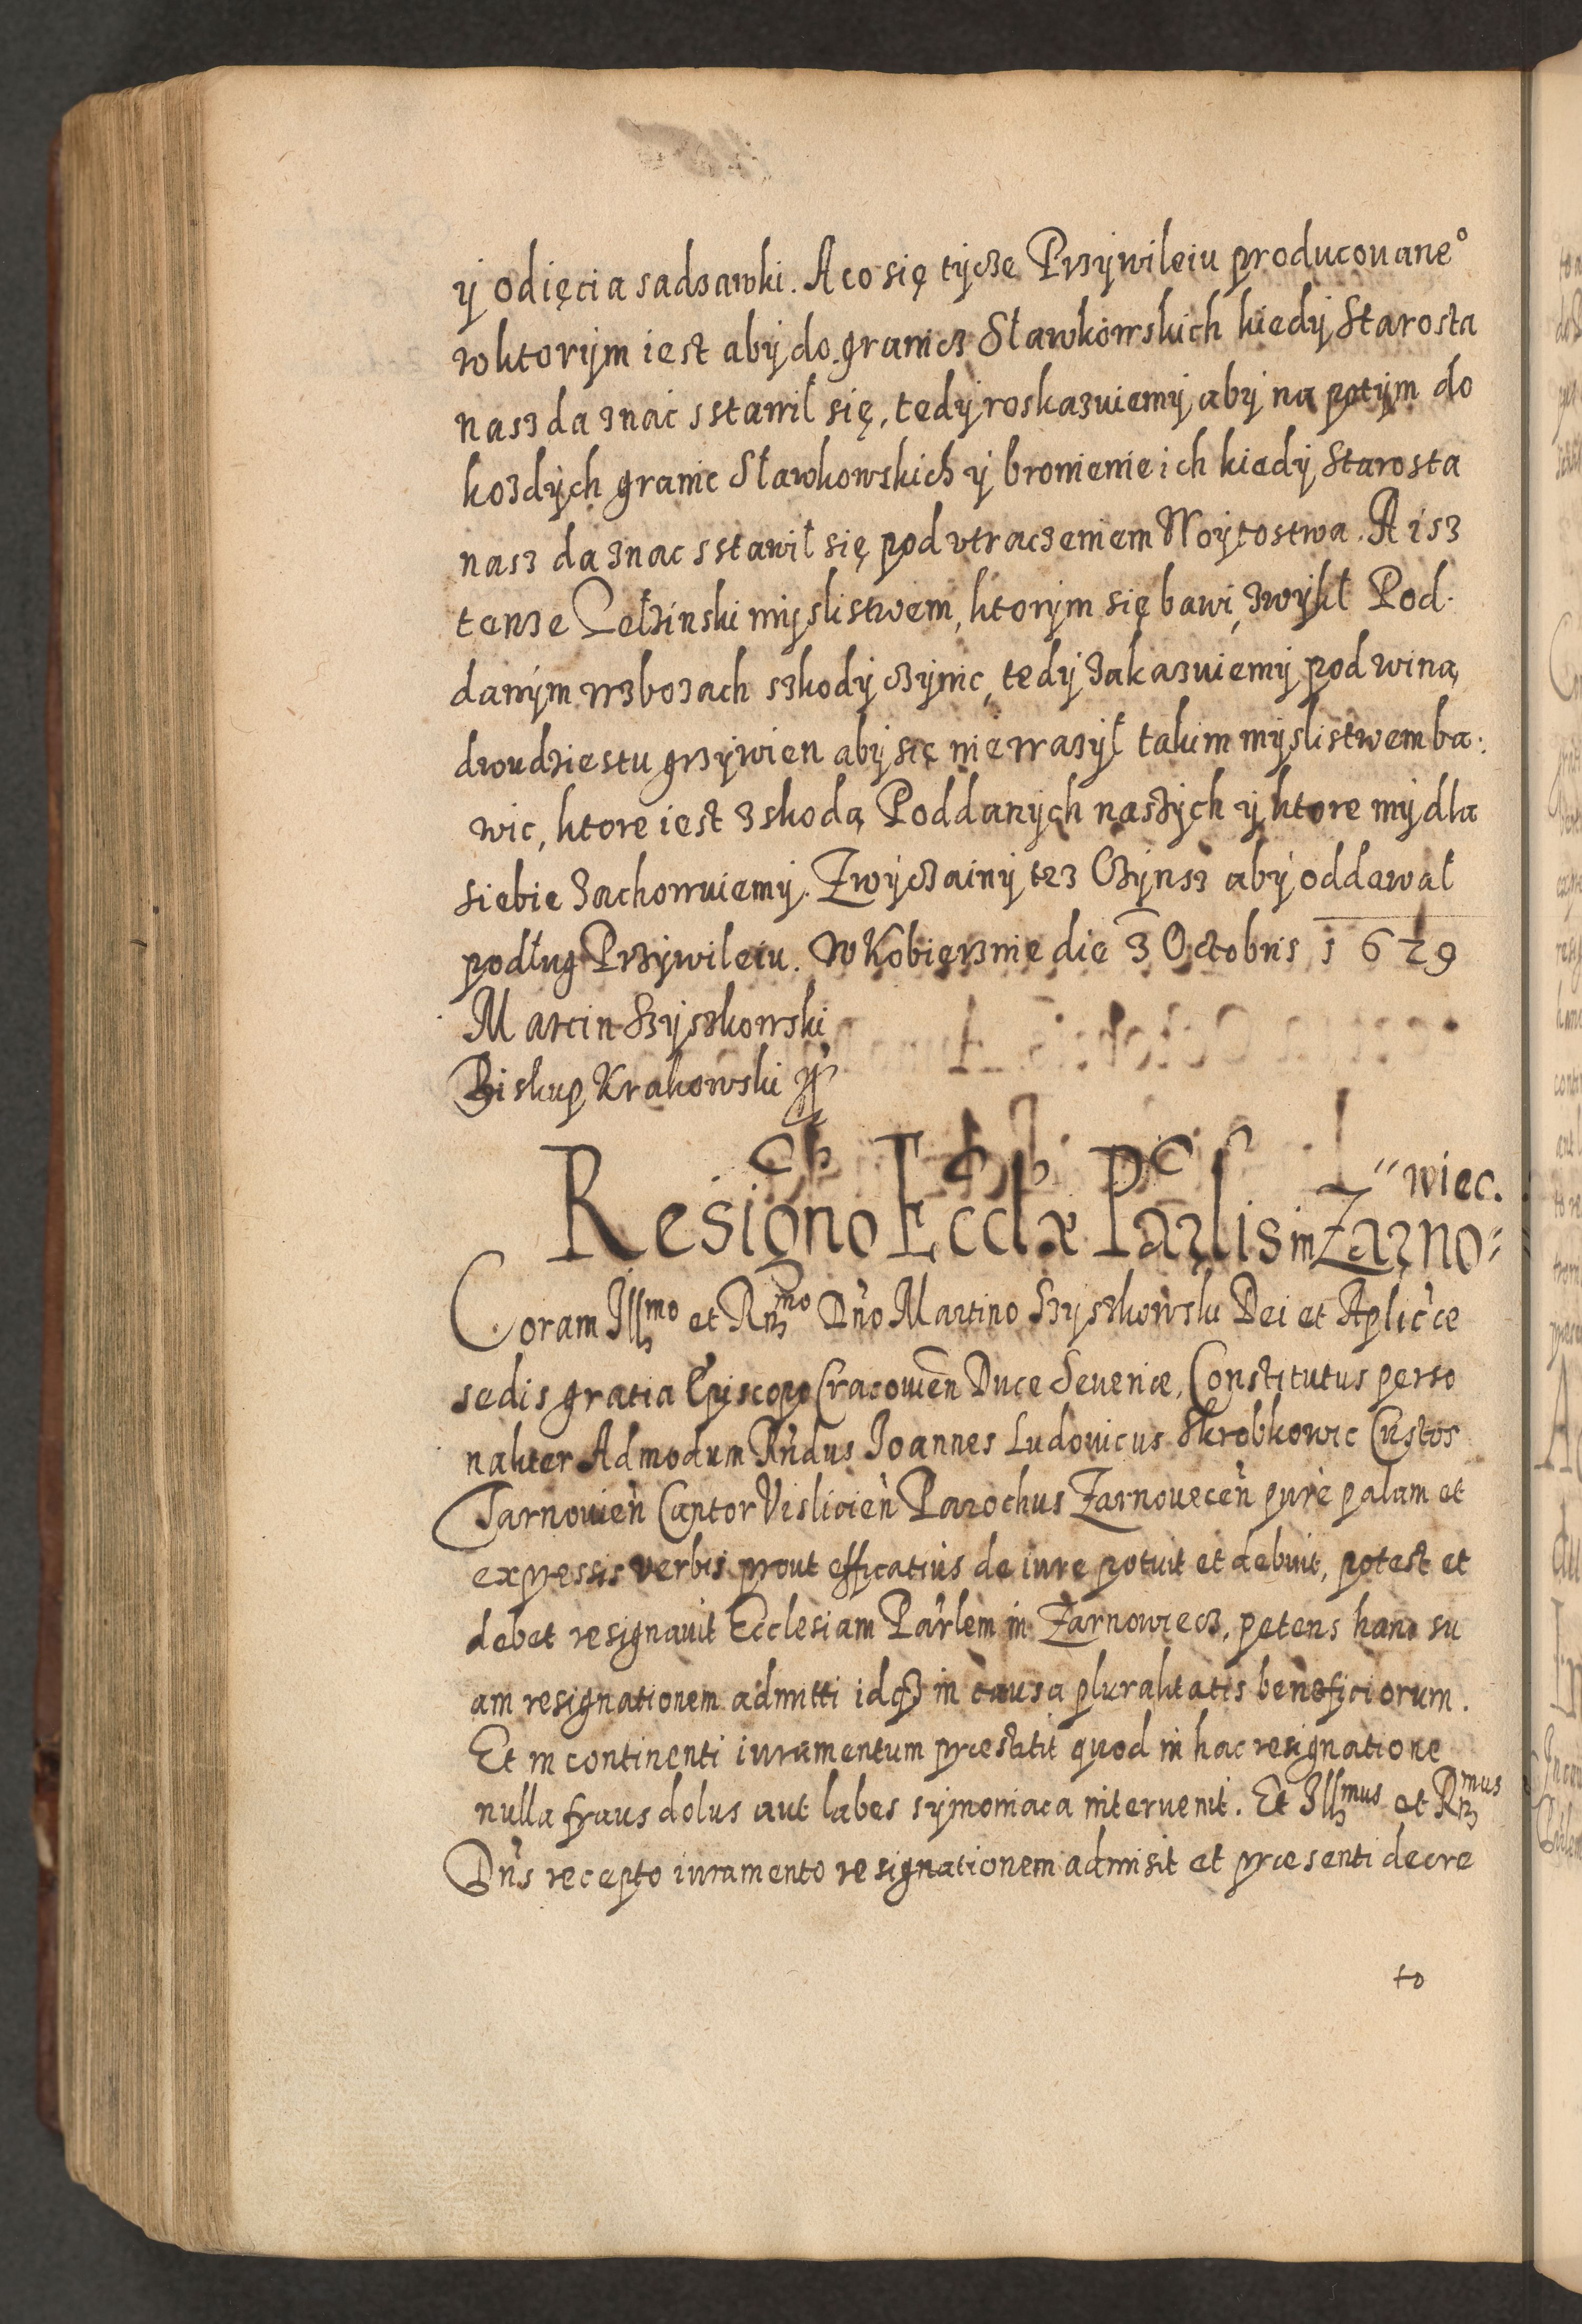 ÿ odięcia sadzawki. A co się tÿcze Przÿwileiu producouane°
w ktorÿm iest abÿ do granicz Sławkowskich kiedÿ Starosta
nasz da znać sstawił się, tedÿ roskazuiemÿ abÿ na potÿm do
kozdÿch granic Sławkowskich ÿ bronienie ich kiedÿ Starosta
nasz da znac sstawił się pod vtraczeniem Woÿtostwa. A isz
tenze mÿslistwem, ktorym się bawi, zwÿkł Pod-
danÿm w zbozach szkodÿ czÿnic, tedÿ zakazuiemÿ pod winą
dwudziestu grzÿwien abÿ się nie wazÿł takim mÿslistwem ba-
wic, ktore iest z skodą Poddanÿch naszÿch ÿ ktore mÿ dla
siebie zachowuiemÿ. Zwÿczainÿ tez Czÿnsz abÿ oddawał
podług Przÿwileiu. W Kobierznie die 3 Octobris 1629
Marcin Szÿszkowski
Biskup Krakowski
Resigno Eccłæ Parlis in Zarno-
wiec.
Coram Illmo et Rmo Dño Martino Szÿszkowski Dei et Aplicce
sedis gratia Episcopo Cracouien Duce Seueriæ, Constitutus perso
naliter Admodum Rndus Ioannes Ludouicus Skrobkowic Custos
Tarnouien Cantor Vislicien Parochus Zarnouecen pure palam et
expressis verbis prout efficatius de iure potuit et debuit, potest et
debet resignauit Ecclesiam Parlem in Zarnowiecz, petens hanc su
am resignationem admitti idqz in causa pluralitatis beneficiorum.
Et in continenti iuramentum præstitit quod in hac resignatione
nulla fraus dolus aut labes sÿmoniaca interuenit. Et Illmus et Rmus
Dns recepto iuramento resignationem admisit et præsenti decre
to